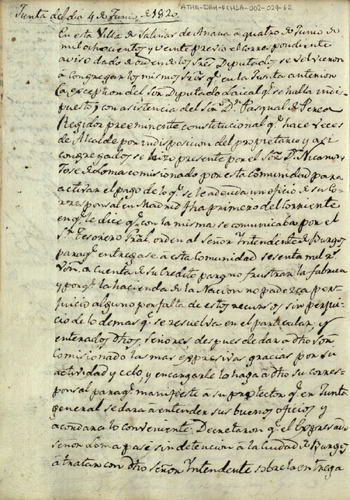 ATHA-DAH-FCHSA-002-029-62
Junta del dia 4 de Junio de 1820.
En esta Villa de Salinas de Anana a quatro de Junio de
mil ochocientos y veinte previo el correspondiente
aviso dado de orden de los Sres Diputados se volvieron
a congregar los mismos Sres qe en la Junta anterior
a excepcion del Sor Diputado Laical qe se halla indis
puesto y con asistencia del Sor Dn Pasqual de Perea
Regidor preeminente constitucional qe hace veces
de Alcalde por indisposicion del propietario y asi
congregados se hizo presente por el Sor Dn Nicanor
Jose de Loma comisionado por esta comunidad para
activar el pago de lo qe se le adeuda un oficio de su cor
responsal en Madrid fha primero del corriente
en qe le dice qe con la misma se comunicaba por el
Sr Tesorero Gral. orden al Señor Intendente de Burgos
para qe entregase a esta comunidad sesenta mil rs
von. a cuenta de su credito para no frustrar la fabrica
y porqe la hacienda de la Nacion no padezca per-
juicio alguno por falta de estos recursos sin perjui
cio de lo demas qe se resuelva en el particular y
enterados dhos. señores despues de dar a dho Sor
comisionado las mas expresivas gracias por su
actividad y celo, y encargarle lo haga a dho su corres
ponsal para qe manifieste a su protector qe en Junta
general se dara a entender sus buenos oficios y
acordara lo conveniente: Decretaron qe el expresado
señor Loma pase sin detencion a la Ciudad de Burgos
a tratar con dho señor Intendente sobre la entrega